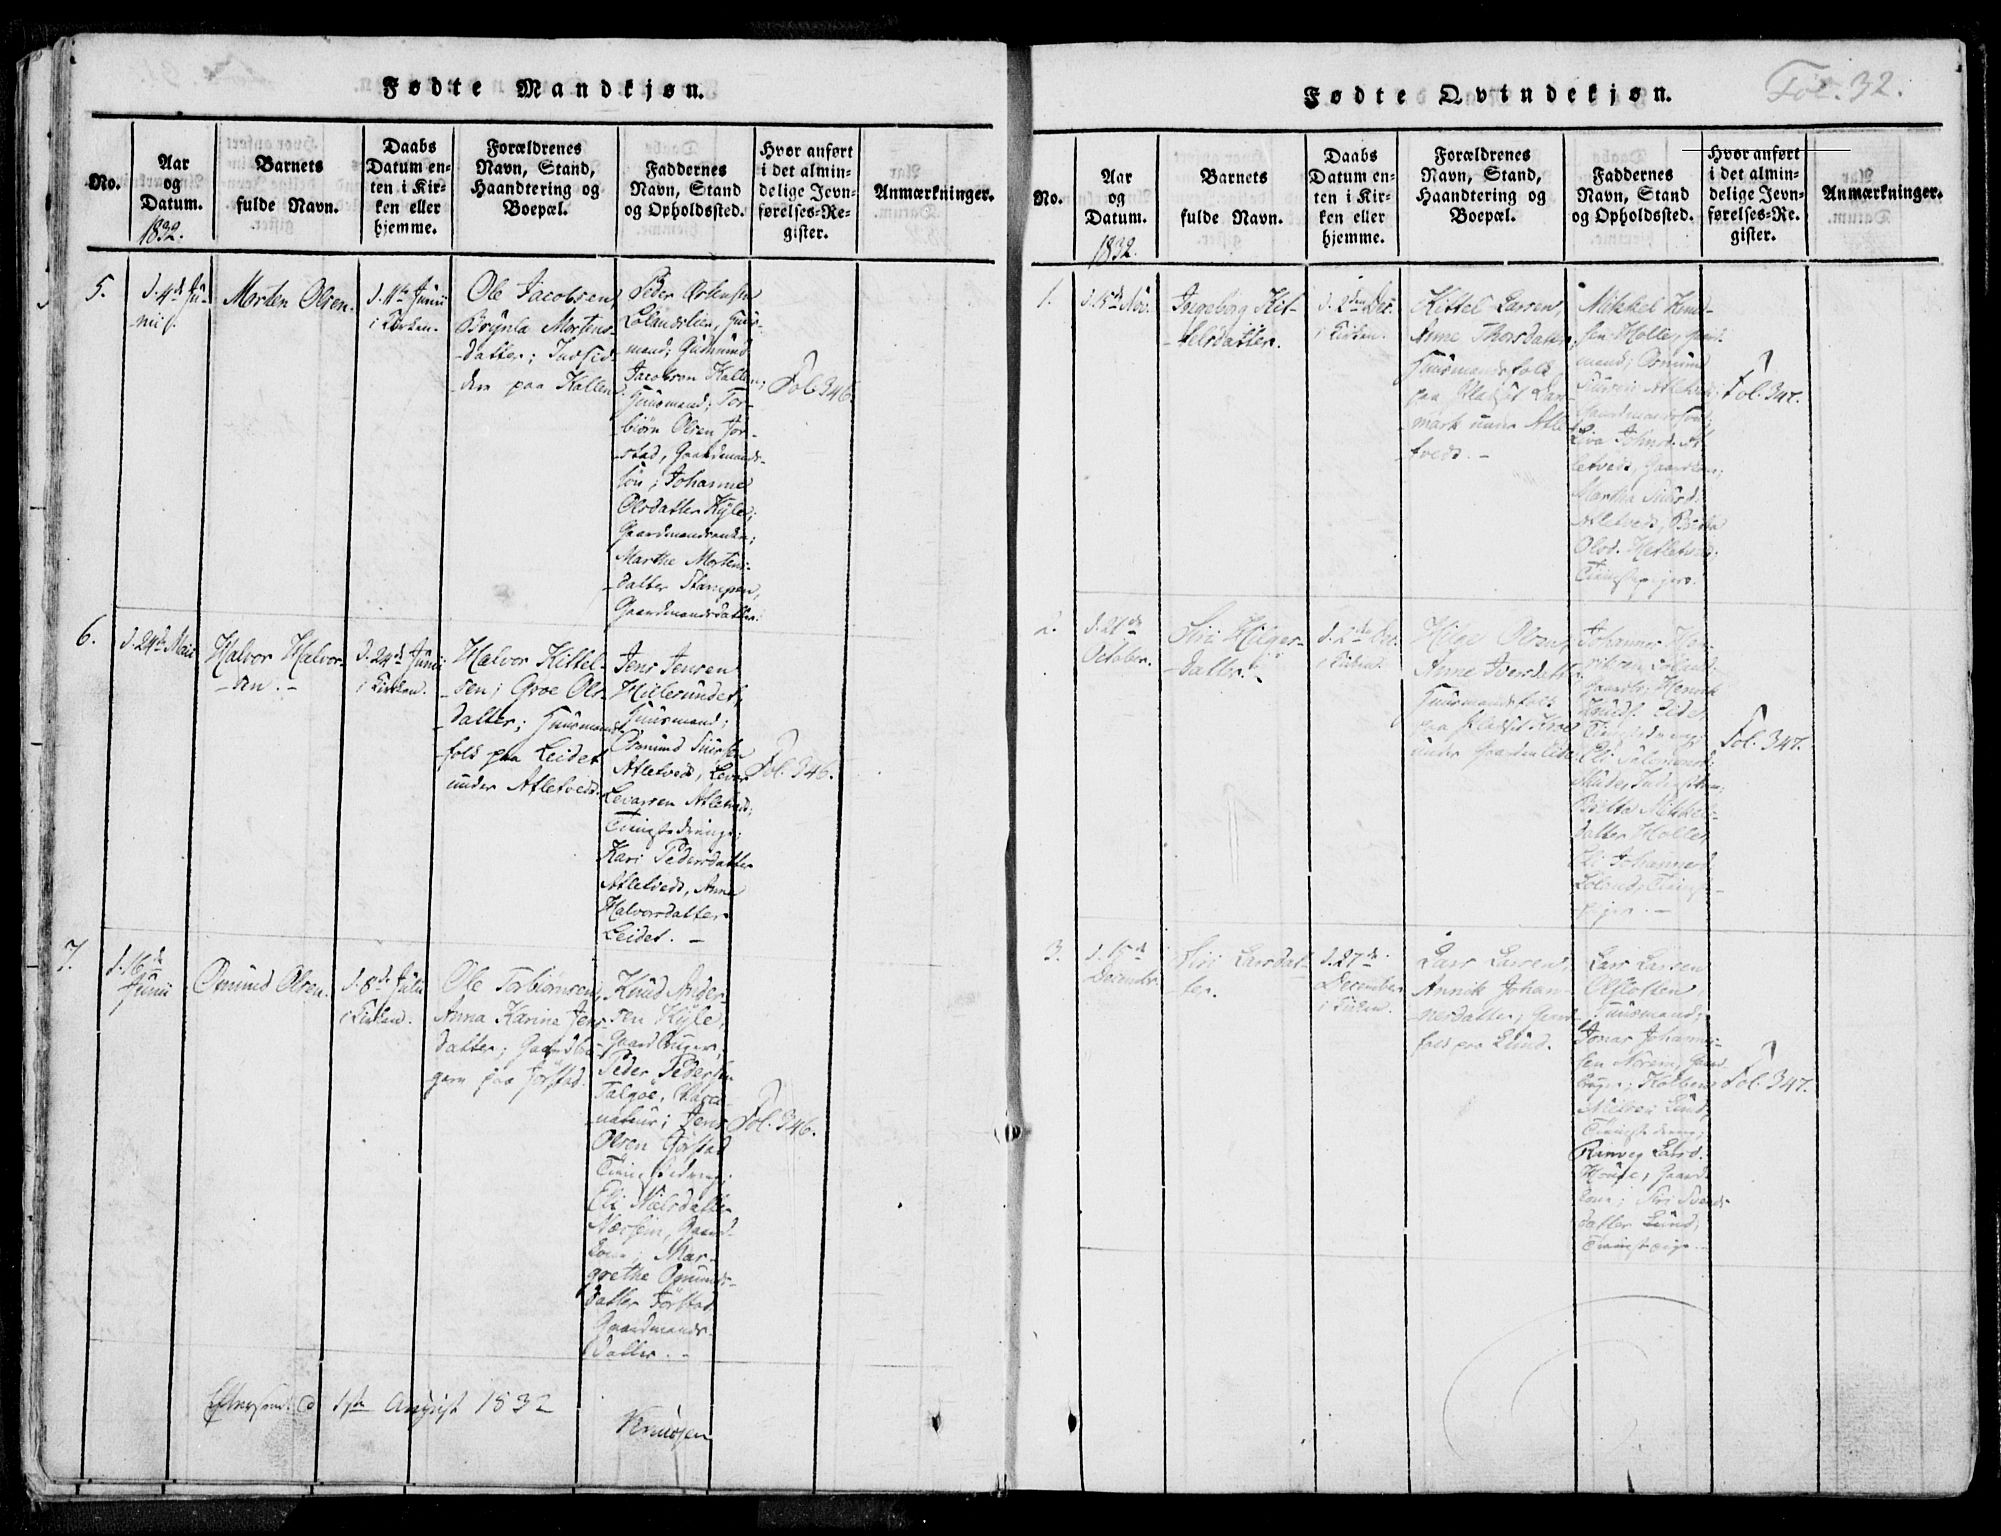 Fødte Mandkjøn.
No.
Aar
og
Datum.
1832.
Barnets
fulde Navn.
Daabs
Datum en-
ten i Kir-
ken eller
hjemme.
Forældrenes
Navn, Stand,
Haandtering og
Boepæl.
Faddernes
Navn, Stand
og Opholdssted.
Hvor anført
i det almin-
delige Jevn-
førelses-Re-
gister.
Anmærkninger.
5.
d. 4de Ju-
nii
Morten Olsen.
d. 11te Junii
i Kirken.
Ole Jacobsen
Brynla Mortens-
datter; Indsid-
dere paa Kallen
Peder
Lolandslien, Huus-
mand; Gudmund
Jacobsen Kallen;
Huusmand; Tor-
biørn Olsen Jør-
stad, Gaardmands-
søn; Johanne
Olsdatter Kyle;
Gaardmandsenke;
Marthe Mortens-
datter Stangeren,
Gaardmandsdatter.
Fol. 346.
6.
d. 24de Maii
Halvor Halvor-
sen. -
d. 24de Junii
i Kirken.
Halvor Kittel-
sen; Groe Ols-
datter; Huusmands-
folk paa Leidet
under Atletvedt.
Jens Jensen
Hillesundet,
Huusmand;
Osmund Siursen
Atletvedt, Levar
Levarsen Atletvedt;
Tienistedrenge;
Kari Pedersdatter
Atletvedt, Anne
Halvorsdatter
Leidet. -
Fol. 346.
7.
d. 16de
Junii
Omund Olsen.
d. 8de Julii
i Kirken.
Ole Torbiørnsen,
Anna Karina Jens-
datter; Gaardbru-
gere paa Jørstad.
Knud
sen Kyle,
Gaardbruger;
Peder Pedersen
Talgøe,
Jens
Olsen Jørstad
Tienistedreng;
Eli Nielsdatter
Nærheim, Gaard-
kone; Mar-
grethe Omunds-
datter Jørstad
Gaardmands-
datter. -
Fol. 346.
1ste August 1832
Fødte Qvindekjøn.
Fol. 32.
No.
Aar
og
Datum.
1832.
Barnets
fulde Navn.
Daabs
Datum en-
ten i Kir-
ken eller
hjemme.
Forældrenes
Navn, Stand,
Haandtering og
Boepæl.
Faddernes
Navn, Stand
og Opholdssted.
Hvor anført
i det almin-
delige Jevn-
førelses-Re-
gister.
Anmærkninger.
1.
d. 15de Nov.
Ingeborg Kit-
telsdatter.
d. 2den Dec.
i Kirken.
Kittel Larsen,
Anne Thorsdatter
Huusmandsfolk
paa Pladset Lar-
mark under Atlet-
vedt. -
Mikkel Knud-
sen Holle, Huus-
mand; Osmund
Siursen Atletvedt
Gaardmandssøn;
Siva Johnsd. At-
letvedt, Gaardkone;
Martha Siursd.
Atletvedt,
Olsd. Hetletvedt;
Tienistepiger.
Fol. 347.
2.
d. 21de
October.
Siri Helges-
datter.
d. 2den Dec.
i Kirken.
Helge Olsen,
Anne Iversdatter
Huusmandsfolk
paa Pladset
under Gaarden Eide
Johannes Hen-
riksen,
Gaardbr; Henrik
Knuds. Eidet
Tienistedreng;
Britta Mikkels-
datter Holle,
Eli Johannesd.
Loland, Tieniste-
piger. -
Fol. 347.
3.
d. 15de
December
Siri Larsdat-
ter.
d. 27de
December
i Kirken.
Lars Larsen,
Annik Johan-
nesdatter; Gaard-
folk paa Lund.
Lars Larsen
Huusmand;
Jonas Johannes-
sen Norem, Gaard-
bruger; Kolbens
Nielsen Lund,
Tienistedreng;
Ranveg Larsd.
Gaard-
kone; Siri Svends-
datter Lund,
Tienistepige. -
Fol. 347.